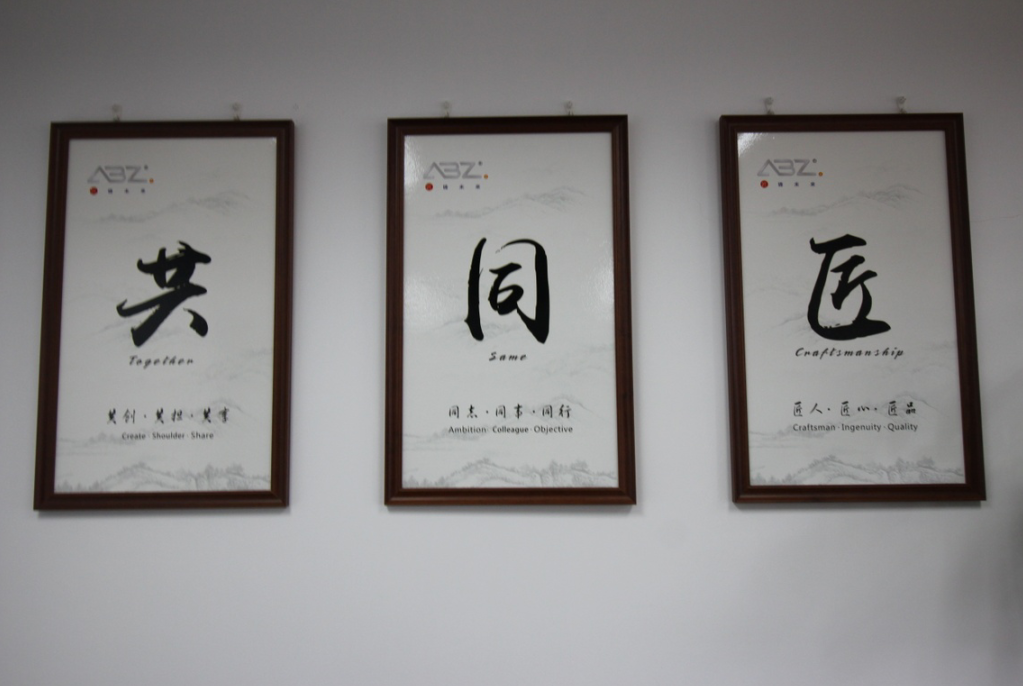 ABZ
共
Together
共创·共担·共享
Create·Shoulder·Share
ABZ
同
Same
同志·同事·同行
Ambition·Colleague·Objective
ABZ
匠
Craftsmanship
匠人·匠心·匠品
Craftsman·Ingenuity·Quality